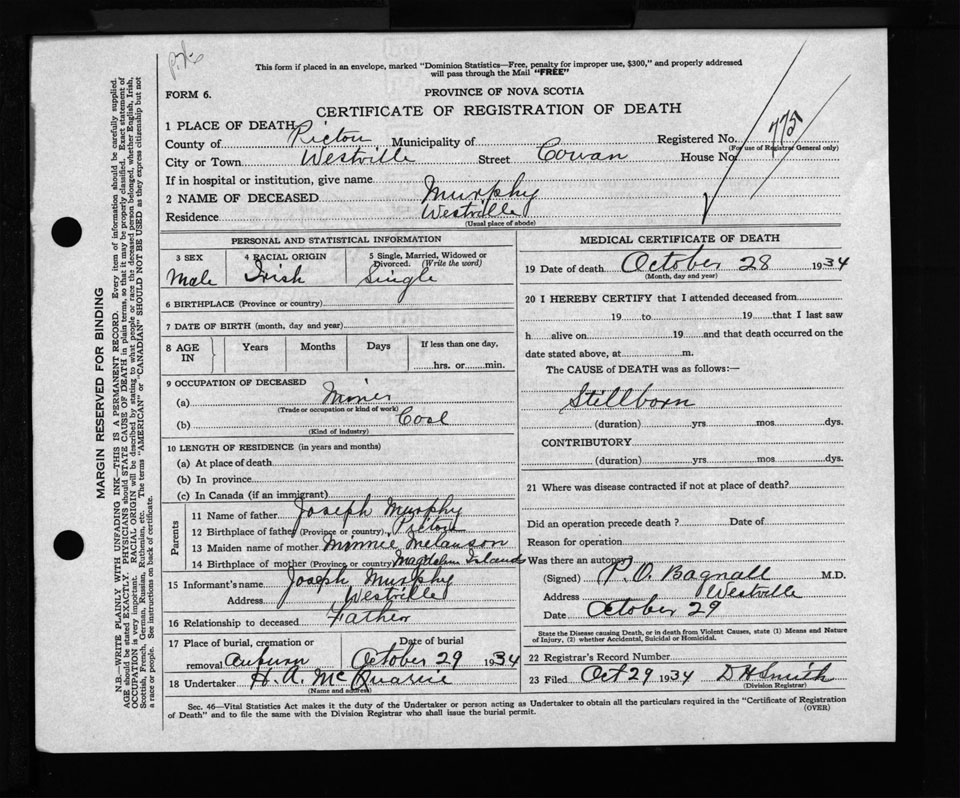 This form if placed in an envelope, marked "Dominion Statistics—Free, penalty for improper use, $300," and properly addressed
will pass through the Mail "FREE"
FORM 6.
PROVINCE OF NOVA SCOTIA
CERTIFICATE OF REGISTRATION OF DEATH
1 PLACE OF DEATH
County of Pictou Municipality of Registered No. 775
(For use of Registrar General only)
City or Town Westville Street Cowan House No.
If in hospital or institution, give name
2 NAME OF DECEASED Murphy
Residence Westville
(Usual place of abode)
PERSONAL AND STATISTICAL INFORMATION
3 SEX 4 RACIAL ORIGIN 5 Single, Married, Widowed or
Divorced. (Write the word)
Male Irish Single
6 BIRTHPLACE (Province or country)
7 DATE OF BIRTH (month, day and year)
8 AGE IN Years Months Days If less than one day,
hrs. or min.
9 OCCUPATION OF DECEASED
(a) Miner
(Trade or occupation or kind of work)
(b) Coal
(Kind of industry)
10 LENGTH OF RESIDENCE (in years and months)
(a) At place of death
(b) In province
(c) In Canada (if an immigrant)
Parents
11 Name of father Joseph Murphy
12 Birthplace of father (Province or country) Pictou
13 Maiden name of mother Minnie Melanson
14 Birthplace of mother (Province or country) Magdalen Islands
15 Informant's name Joseph Murphy
Address Westville
16 Relationship to deceased Father
17 Place of burial, cremation or Date of burial
removal Auburn October 29 1934
18 Undertaker H. A. McQuarrie
(Name and address)
MEDICAL CERTIFICATE OF DEATH
19 Date of death October 28 1934
(Month, day and year)
20 I HEREBY CERTIFY that I attended deceased from
19 to 19 that I last saw
h alive on 19 and that death occurred on the
date stated above, at m.
The CAUSE of DEATH was as follows:—
Stillborn
(duration) yrs mos dys.
CONTRIBUTORY
(duration) yrs mos dys.
21 Where was disease contracted if not at place of death?
Did an operation precede death? Date of
Reason for operation
Was there an autopsy
(Signed) P. O. Bagnall M.D.
Address Westville
Date October 29
State the Disease causing Death, or in death from Violent Causes, state (1) Means and Nature
of Injury, (2) whether Accidental, Suicidal or Homicidal.
22 Registrar's Record Number
23 Filed Oct 29 1934 D H Smith
(Division Registrar)
Sec. 46—Vital Statistics Act makes it the duty of the Undertaker or person acting as Undertaker to obtain all the particulars required in the "Certificate of Registration
of Death" and to file the same with the Division Registrar who shall issue the burial permit.
(OVER)
MARGIN RESERVED FOR BINDING
N.B.—WRITE PLAINLY WITH UNFADING INK—THIS IS A PERMANENT RECORD. Every item of information should be carefully supplied.
AGE should be stated EXACTLY. PHYSICIANS should STATE CAUSE OF DEATH in plain terms, so that it may be properly classified. Exact statement of
OCCUPATION is very important. RACIAL ORIGIN will be described by stating to what people or race the deceased person belonged, whether English, Irish,
Scottish, French, German, Russian, Ruthenian, etc. The terms "AMERICAN" or "CANADIAN" SHOULD NOT BE USED as they express citizenship but not
a race or people. See instructions on back of certificate.